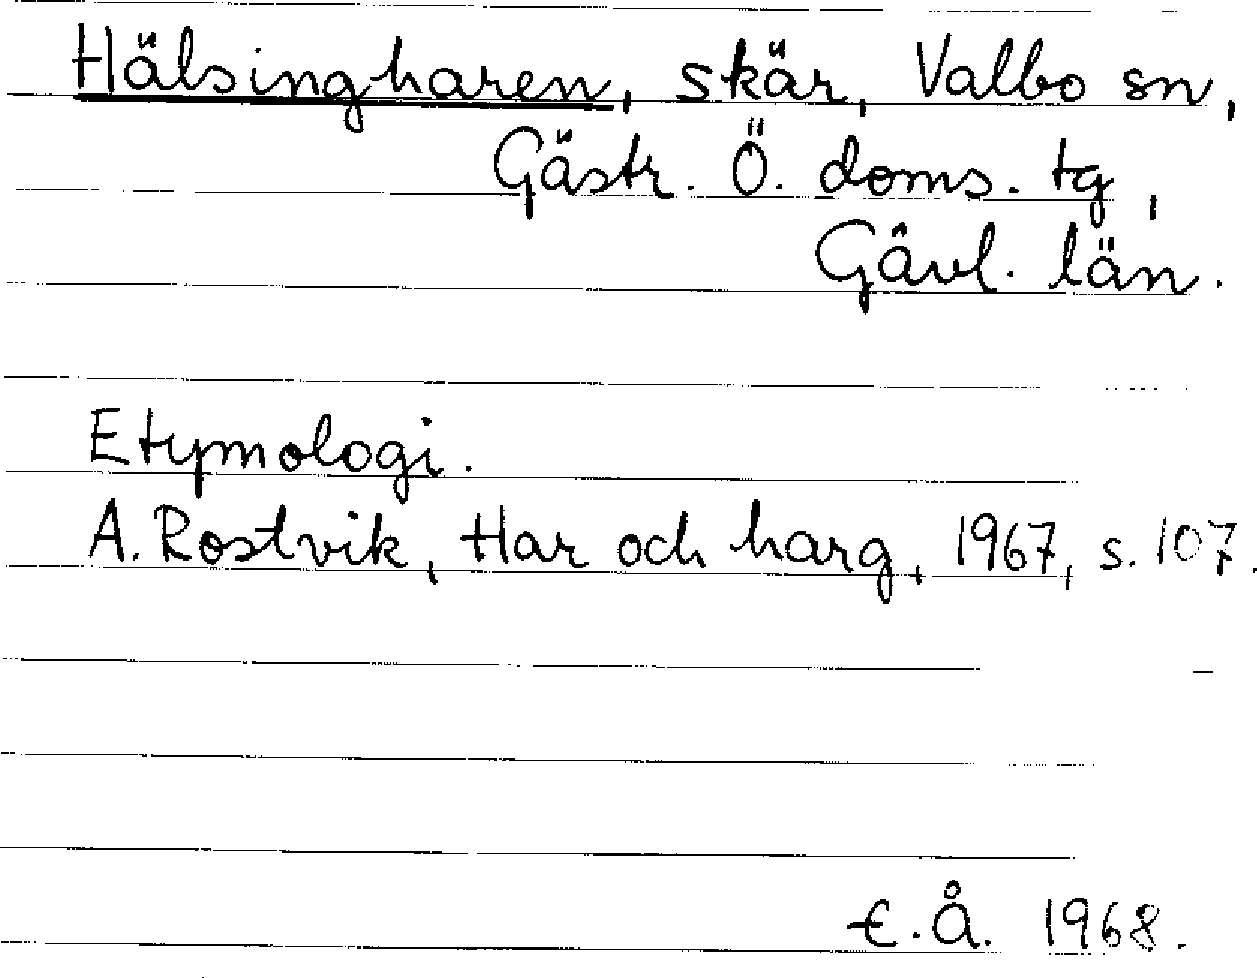 Hälsingharen, skär, Valbo sn,
Gästr. Ö. doms. tg,
Gävl. län.
Etymologi.
A. Rostvik, Har och harg, 1967, s. 107.
E.Å. 1968.